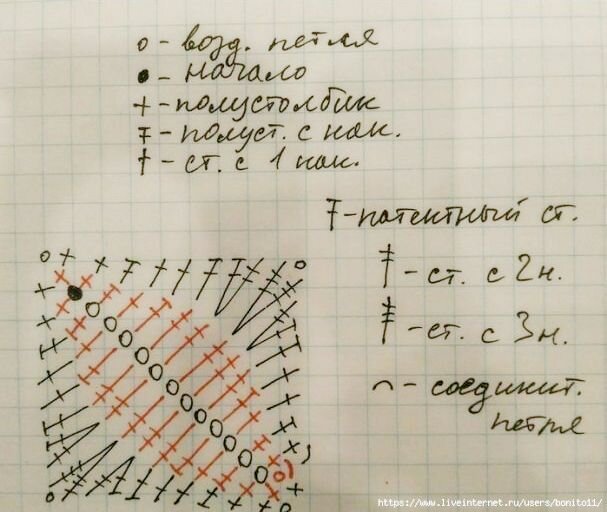 о - возд. петля
● - начало
+ - полустолбик
- полуст. с нак.
† - ст. с 1 нак.
- патентный ст.
- ст. с 2 н.
- ст. с 3 н.
⌒ - соединит.
петля
https://www.liveinternet.ru/users/bonito11/